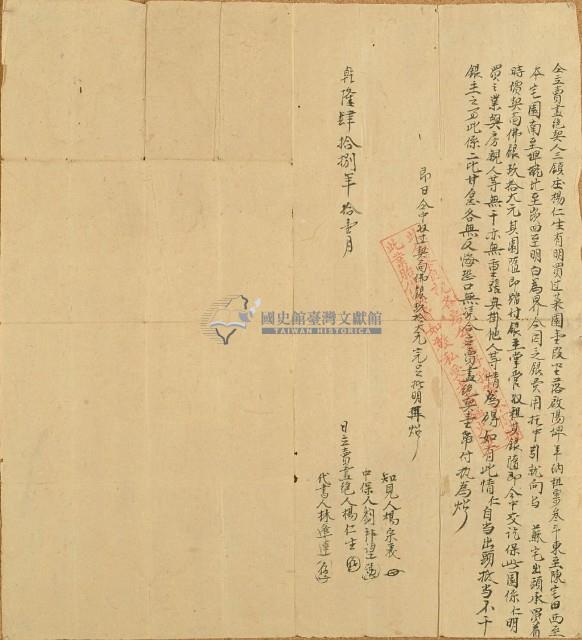 仝立賣盡絕契人三鎮庄楊仁生有明買过菜園壹段坐落啟陽埤年納租票叁斗東至陳宅田西至
本宅園南至埤北至崁四至明白為界今因乏銀費用托中引就向与 蘇宅出頭承買着
時價契面佛銀玖拾大元其園隨即踏付銀主掌管收租其銀隨即仝中交訖保此園係仁明
買之業與房親人等無干亦無重張典掛他人等情為碍如有此情仁自当出頭抵当不干
銀主之事此係二比甘愿各無反悔恐口無憑合立賣盡絕契壹紙付执為炤
即日仝中收过契面佛銀玖拾大元完足批明再炤
乾隆肆拾捌年拾壹月
知見人楊宗
中保人劉邦望
日立賣盡絕人楊仁生
代書人林連
國史館臺灣文獻館
TAIWAN HISTORICA